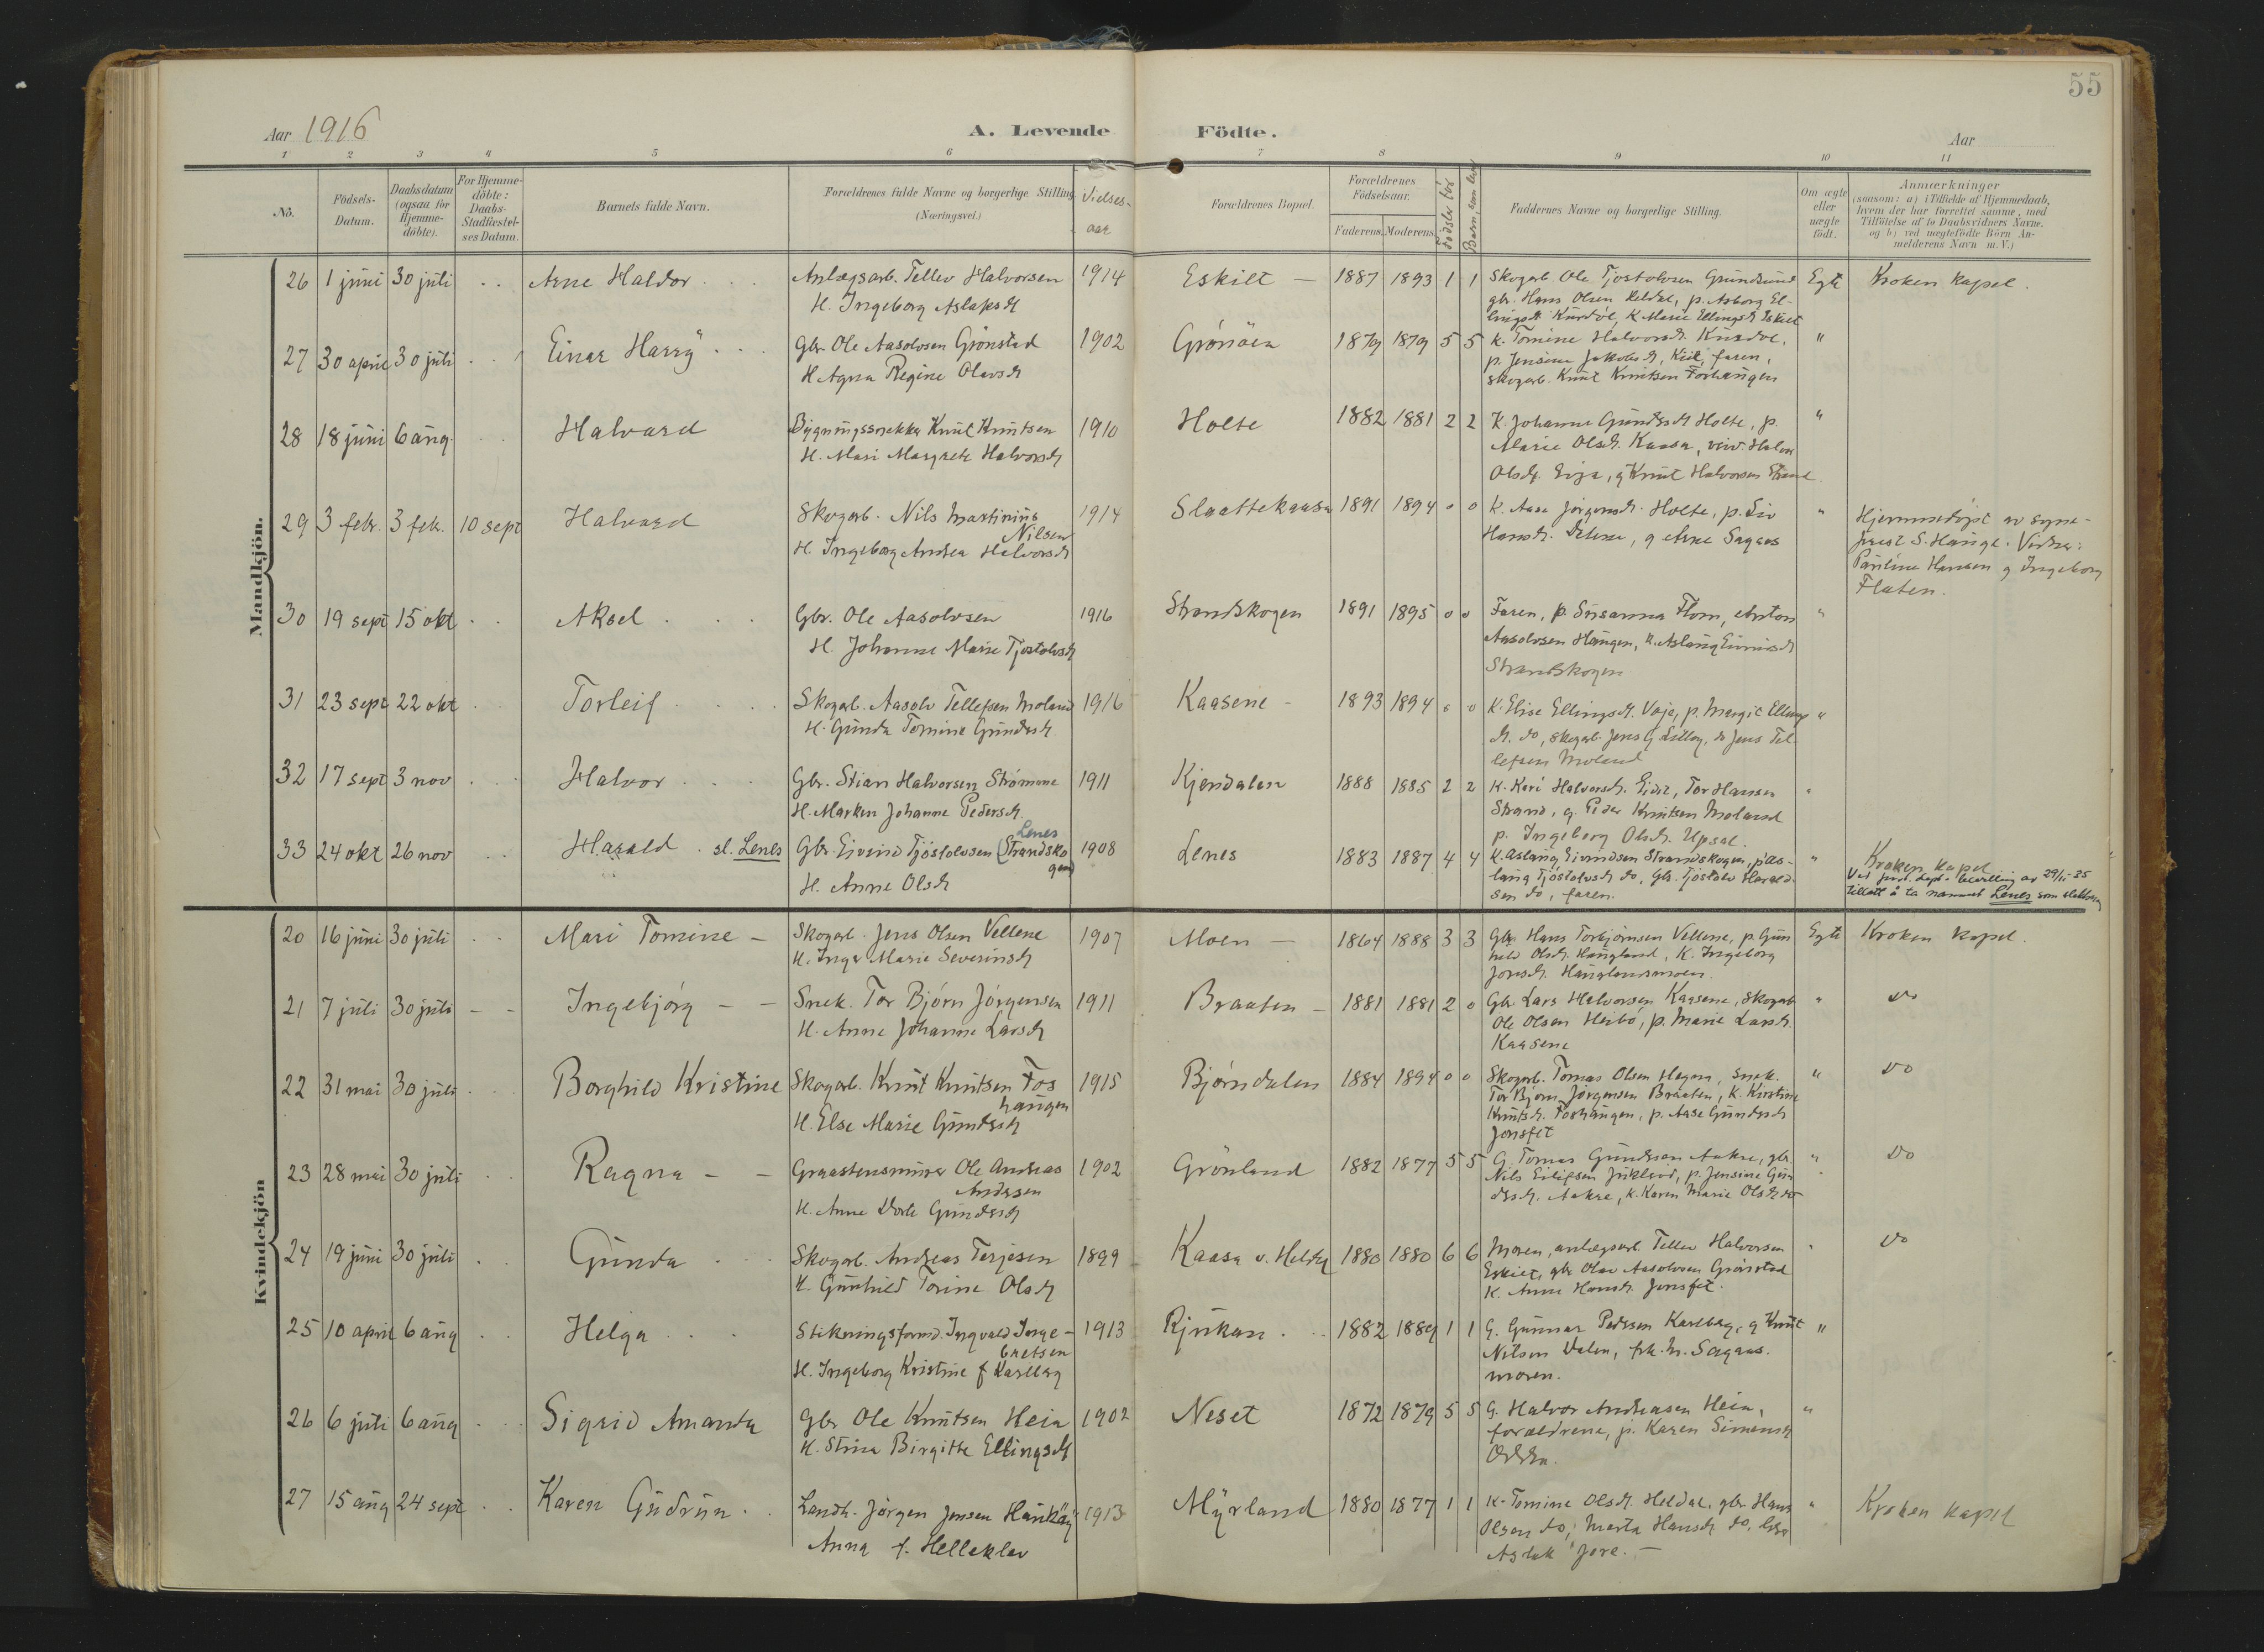 55
Aar 1916
A. Levende Fødte.
Aar
1 2 3 4 5 6 7 8 9 10 11
No.
Födsels-Datum.
Daabsdatum (ogsaa for Hjemme-döbte).
For Hjemme-döbte: Daabs-Stadfæstel-ses Datum.
Barnets fulde Navn.
Forældrenes fulde Navne og borgerlige Stilling (Næringsvei.)
Vielses-aar
Forældrenes Bopæl.
Forældrenes Fødselsaar.
Faderens. Moderens.
Fødsler før
Barn, som lever
Faddernes Navne og borgerlige Stilling.
Om ægte eller uægte födt.
Anmærkninger
(saasom: a) i Tilfælde af Hjemmedaab,
hvem der har forrettet samme, med
Tilföielse af to Daabsvidners Navne.
og b) ved uægtefödte Börn An-
melderens Navn m. V.)
Mandkjön.
26 1 juni 30 juli Arne Haldor Anlægsarb. Tellev Halvorsen 1914 Eskilt 1887 1893 1 1 Skogarb. Ole Tjostolvsen Grundsund Egte Kroken kapel.
H. Ingeborg Aslaksdt
gbr. Hans Olsen Heldal, p. Asborg El-
lingsdt Kurdöl, K. Marie Ellingsdt Eskilt
27 30 april 30 juli Einar Harry Gbr. Ole Aasolvsen Grönstad 1902 Grönåsen 1879 1879 5 5 K. Tomine Halvorsdt. Kurdöl, "
H. Agna Regine Olavsdt
p. Jensine Jakobsdt, Kiil, faren,
skogarb. Knut Knutsen Foshaugen
28 18 juni 6 aug. Halvard Bygningssnekker Knut Knutsen 1910 Holte 1882 1881 2 2 K. Johanne Gundersdt Holte, p. "
H. Mari Margrete Halvorsdt
Marie Olsdt. Kaasa, Halvor
Olsdt. Eija, g Knut Halvorsen Strand.
29 3 febr. 3 febr. 10 sept Halvard Skogarb. Nils Martinius Nilsen 1914 Slaattekaasa 1891 1894 0 0 K. Aase Jörgensdt. Holte, p. Liv "
H. Ingeborg Andrea Halvorsdt
Hansdt. , g Arne Sagaas
Hjemmedöpt av sogne-
prest S. Hauge. Vidner:
Pauline Hansen g Ingeborg
Flaten.
30 19 sept 15 okt Aksel Gbr. Ole Aasolvsen 1916 Strandskogen 1891 1895 0 0 Faren, p. Susanna Flom, Anton "
H. Johanne Marie Tjostolvsdt
Aasolvsen Haugen, K. Aslaug Eivindsdt
Strandskogen
31 23 sept 22 okt Torleif Skogarb. Aasolv Tellefsen Moland 1916 Kaasene 1893 1894 0 0 K. Elise Ellingsdt. Vaje, p. Margit Ellings "
H. Gunda Tomine Gundersdt
dt. do, skogarb. Jens G , do Jens Tel-
lefsen Moland
32 17 sept 3 nov Halvor Gbr. Stian Halvorsen Strömme 1911 Kjendalen 1888 1885 2 2 K. Kari Halvorsdt. Eidet, Tor Hansen "
H. Marken Johanne Pedersdt.
Strand, g. Peder Knutsen Moland
p. Ingeborg Olsdt. Upsal.
33 24 okt 26 nov Harald sl. Lenes Gbr. Eivind Tjöstolvsen (Strandskogen) Lenes 1908 Lenes 1883 1887 4 4 K. Aslaug Eivindsen Strandskogen, p. As- " Kroken kapel
H. Anne Olsdt
laug Tjöstolvsdt do, Gbr. Tjöstolv Harald-
sen do, faren.
Ved just. dept. bevilling av 29/11-35
tillatt å ta navnet Lenes som slektsnavn
Kvindekjön
20 16 juni 30 juli Mari Tomine Skogarb. Jens Olsen Vellene 1907 Moen 1864 1888 3 3 Gbr. Hans Torbjörnsen Vellene, p. Gun Egte Kroken kapel.
H. Inger Marie Severinsdt
hild Olsdt. Haugland, K. Ingeborg
Jonsdt. Hauglandsmoen.
21 7 juli 30 juli Ingebjörg Snek. Tor Björn Jörgensen 1911 Braaten 1881 1881 2 0 Gbr Lars Halvorsen Kaasene, skogarb " do
H. Anne Johanne Larsdt
Ole Olsen Heibö, p. Marie Larsdt.
Kaasene
22 31 mai 30 juli Borghild Kristine Skogarb. Knut Knutsen Foshaugen 1915 Björndalen 1884 1894 0 0 Skogarb. Tomas Olsen Hegna, snek. " do
H. Else Marie Gundersdt
Tor Björn Jörgensen Braaten, K. Kirstine
Knutsdt. Foshaugen, p. Aase Gundersdt
Jonsfet
23 28 mai 30 juli Ragna Graastensmurer Ole Andreas Andersen 1902 Grönland 1882 1877 5 5 G. Tomas Gundersen Aakre, gbr. " do
H. Anne Dorte Gundersdt
Nils Eilefsen Juklerød, p. Jensine Gun
dersdt. Aakre, K. Karen Marie Olsdt do
24 19 juni 30 juli Gunda Skogarb. Andreas Terjesen 1899 Kaasa v. Heldal 1880 1880 6 6 Moren, anlægsarb. Tellev Halvorsen " do
H. Gunhild Torine Olsdt
Eskilt, gbr Olav Aasolvsen Grönstad
K. Anne Hansdt. Jonsfet.
25 10 april 6 aug Helga Stikningsformd. Ingvald Inge-bretsen 1913 Rjukan 1882 1889 1 1 G. Gunnar Pedersen Karlberg, g Knut "
H. Ingeborg Kristine f Karlberg
Nilsen Dalen, frk. M. Sagaas.
moren.
26 6 juli 6 aug Sigrid Amanda Gbr Ole Knutsen Heia 1902 Neset 1872 1879 5 5 G. Halvor Andreasen Heia, "
H. Stina Birgitte Ellingsdt
forældrene, p. Karen Simensdt

27 15 aug 24 sept Karen Gudrun Landh. Jörgen Jensen Haukåy 1913 Myrland 1880 1877 1 1 K. Tomine Olsdt. Heldal, gbr. Hans " Kroken kapel
Anna f. Helleklev
Olsen do, Marta Hansdt do,
Aslak Jore.